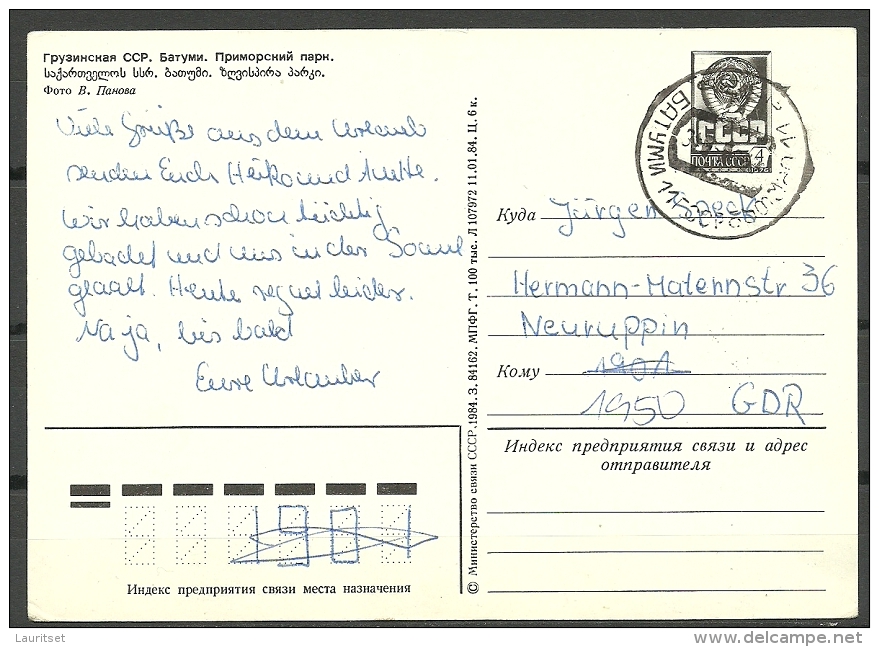 Грузинская ССР. Батуми. Приморский парк.
საქართველოს სსრ. ბათუმი. ზღვისპირა პარკი.
Фото В. Панова
Viele Grüße aus dem Urlaub
senden Euch Heiko und Anette.
Wir haben schon tüchtig
gebadet und uns in der Sonne
geaalt. Heute regnet leider.
Na ja, bis bald
Eure Urlauber
© Министерство связи СССР. 1984. З. 84162. МПФГ. Т. 100 тыс. Л 107972 11.01.84. Ц. 6 к.
СССР
ПОЧТА СССР 4
БАТУМИ
Куда Jürgen Speck
Hermann-Maternstr 36
Neuruppin
Кому 1901
1950 GDR
Индекс предприятия связи и адрес
отправителя
1901
Индекс предприятия связи места назначения
Lauritset
delcampe.net